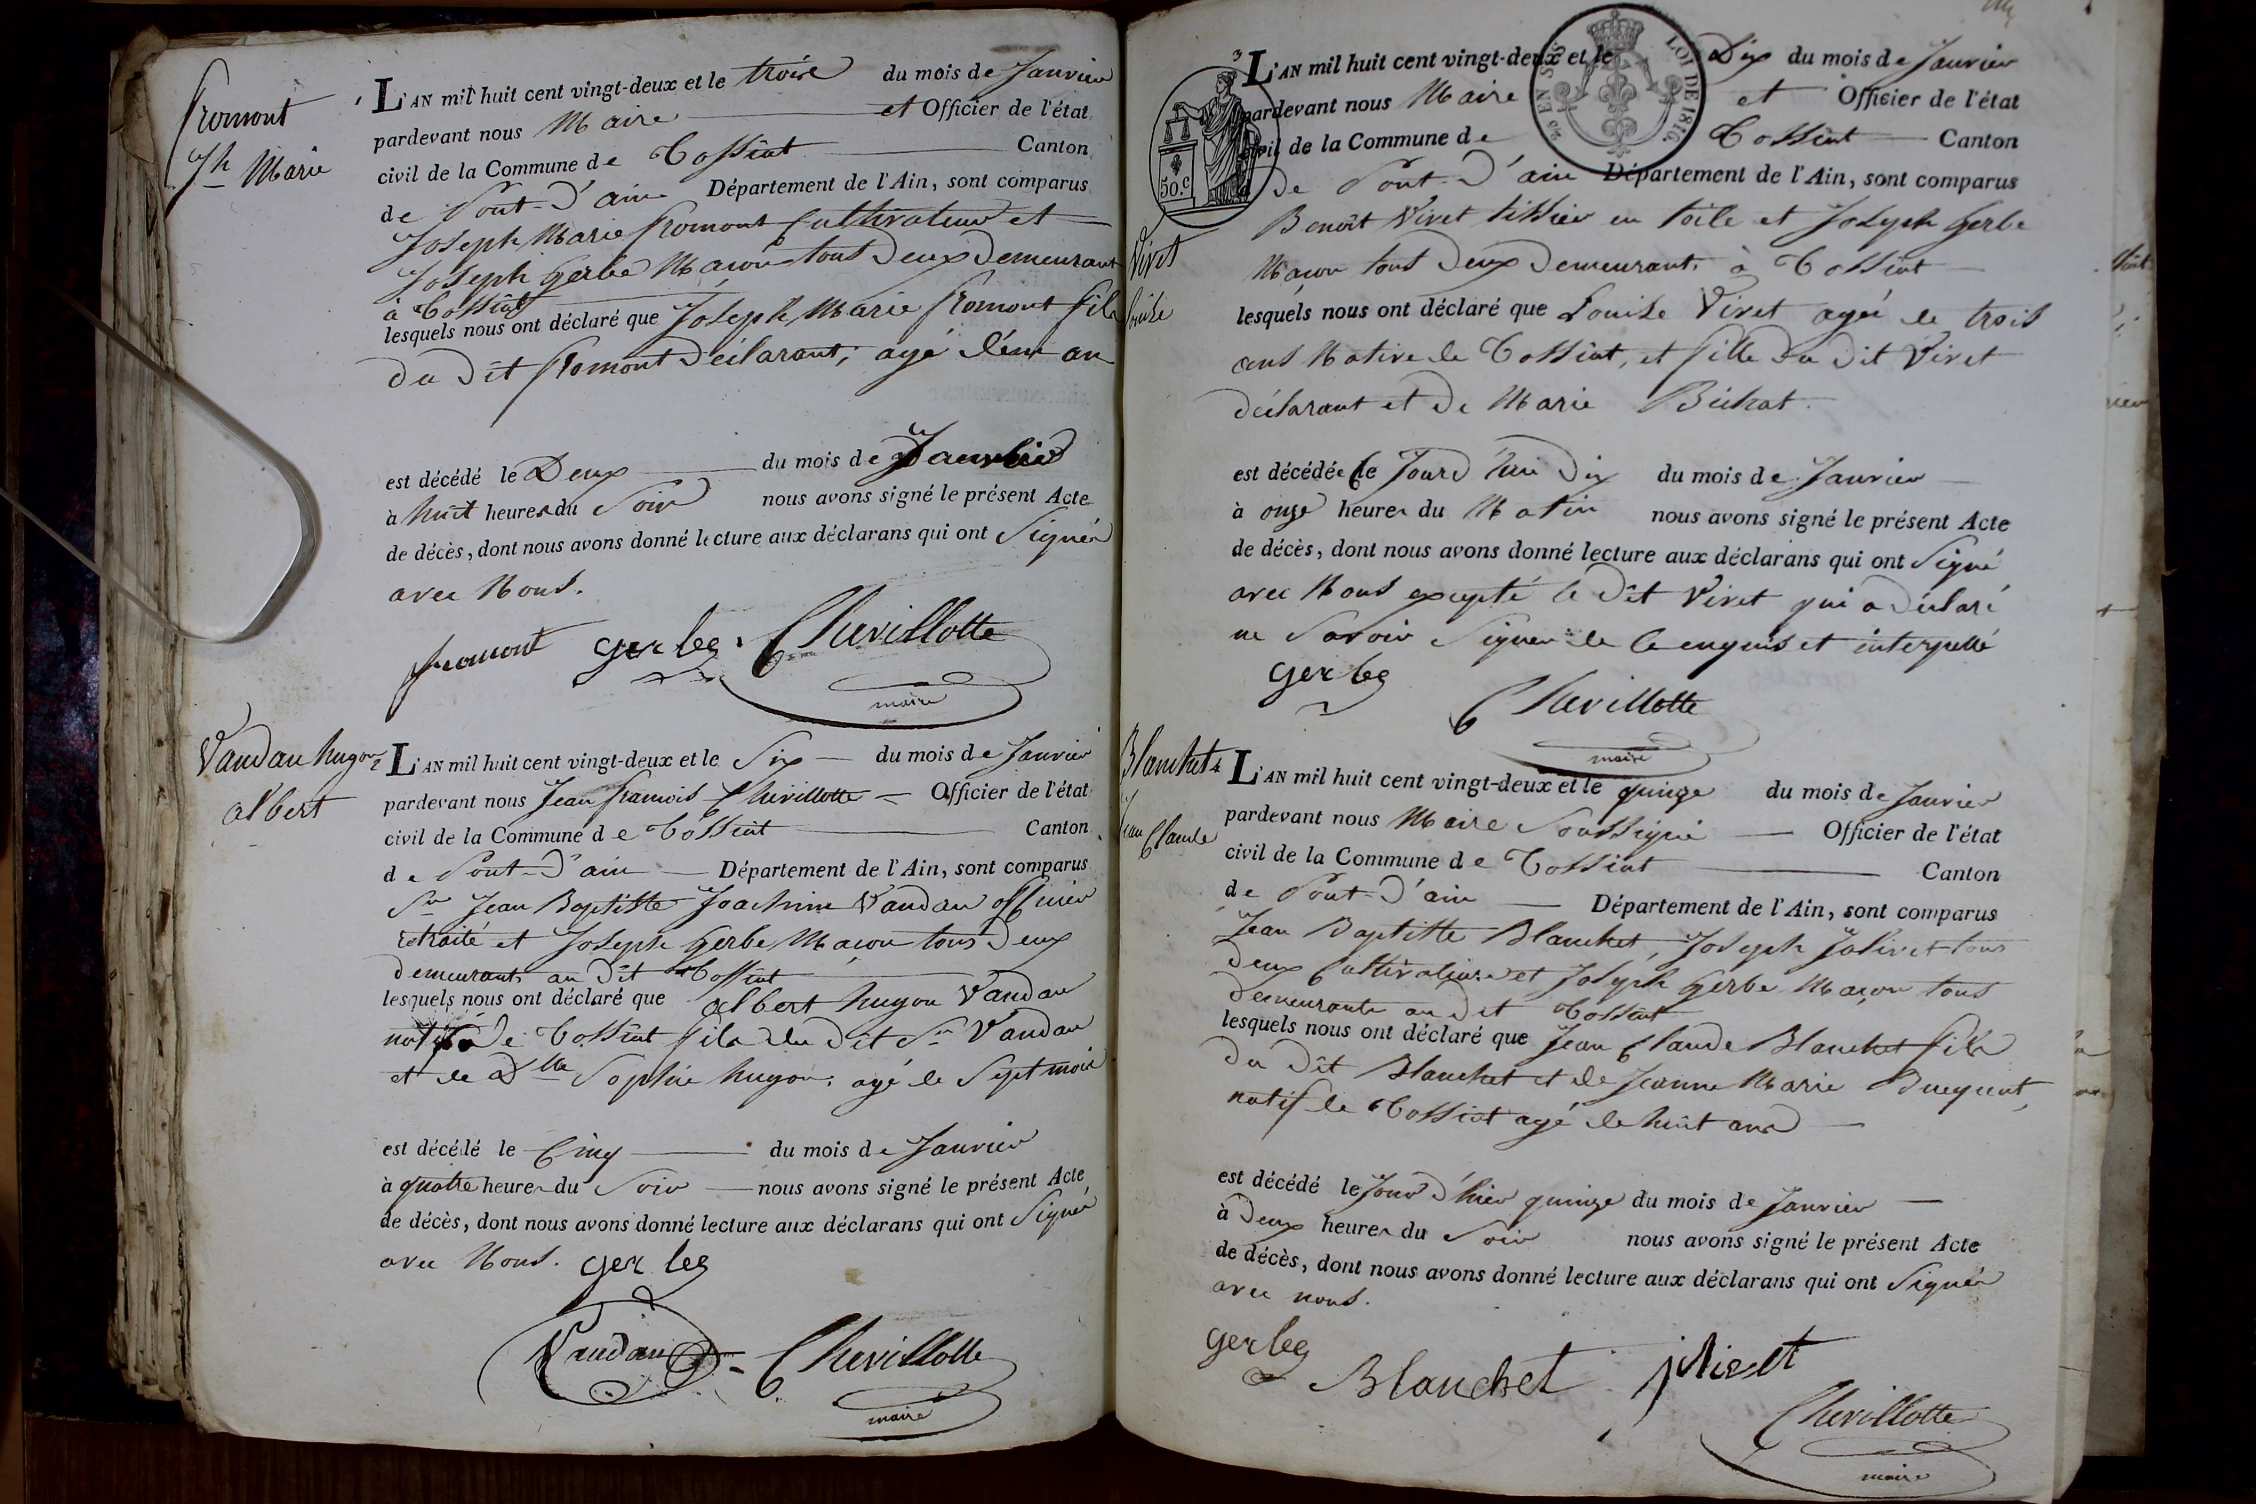 Fromont
Jh Marie
1 L'AN mil huit cent vingt-deux et le troise du mois de Janvier
pardevant nous Maire et Officier de l'état
civil de la Commune de Tossiat Canton
de Pont-d'ain Département de l'Ain, sont comparus
Joseph Marie fromont Cultivateur et
Joseph Gerbe Maçon tout deux demeurant
à Tossiat
lesquels nous ont déclaré que Joseph Marie fromont fils
du dit fromont déclarant, agé d'un an
est décédé le Deux du mois de Janvier
à huit heures du Soir nous avons signé le présent Acte
de décès, dont nous avons donné lecture aux déclarans qui ont Signés
avec Nous.
fromont gerbe Chevillotte
maire
Vaudan hugon
albert
2 L'AN mil huit cent vingt-deux et le Six du mois de Janvier
pardevant nous Jean francois Chevillotte Officier de l'état
civil de la Commune de Tossiat Canton
de Pont-d'ain Département de l'Ain, sont comparus
Sr Jean Baptiste Joachim Vaudan officier
retraité et Joseph Gerbe Maçon tous deux
demeurant au dit Tossiat
lesquels nous ont déclaré que albert hugon Vaudan
natif de Tossiat fils du dit Sr Vaudan
et de dlle Sophie hugon, agé de Sept mois
est décédé le Cinq du mois de Janvier
à quatre heures du Soir nous avons signé le présent Acte
de décès, dont nous avons donné lecture aux déclarans qui ont Signés
avec Nous. gerbe
Vaudan Chevillotte
maire
50.c
LOI DE 1816
EN SUS
Viret
Louise
3 L'AN mil huit cent vingt-deux et le Dix du mois de Janvier
pardevant nous Maire et Officier de l'état
civil de la Commune de Tossiat Canton
de Pont-d'ain Département de l'Ain, sont comparus
Benoît Viret tissier en toile et Joseph Gerbe
Maçon tous deux demeurant à Tossiat
lesquels nous ont déclaré que Louise Viret agée de trois
ans Native de Tossiat, et fille du dit Viret
déclarant et de Marie Bichat
est décédée le Jourd'hui Dix du mois de Janvier
à onze heures du Matin nous avons signé le présent Acte
de décès, dont nous avons donné lecture aux déclarans qui ont Signé
avec Nous excepté le dit Viret qui a déclaré
ne Savoir Signer de Ce enquis et interpellé
gerbe
Chevillotte
maire
Blanchet
Jean Claude
4 L'AN mil huit cent vingt-deux et le quinze du mois de Janvier
pardevant nous Maire Soussigné Officier de l'état
civil de la Commune de Tossiat Canton
de Pont-d'ain Département de l'Ain, sont comparus
Jean Baptiste Blanchet, Joseph Jolivet tous
deux Cultivateurs et Joseph Gerbe Maçon tous
demeurants au dit Tossiat
lesquels nous ont déclaré que Jean Claude Blanchet fils
du dit Blanchet et de Jeanne Marie
natif de Tossiat agé de huit ans
est décédé le Jour d'hier quinze du mois de Janvier
à Deux heures du Soir nous avons signé le présent Acte
de décès, dont nous avons donné lecture aux déclarans qui ont Signés
avec nous.
gerbe Blanchet jolivet
Chevillotte
maire